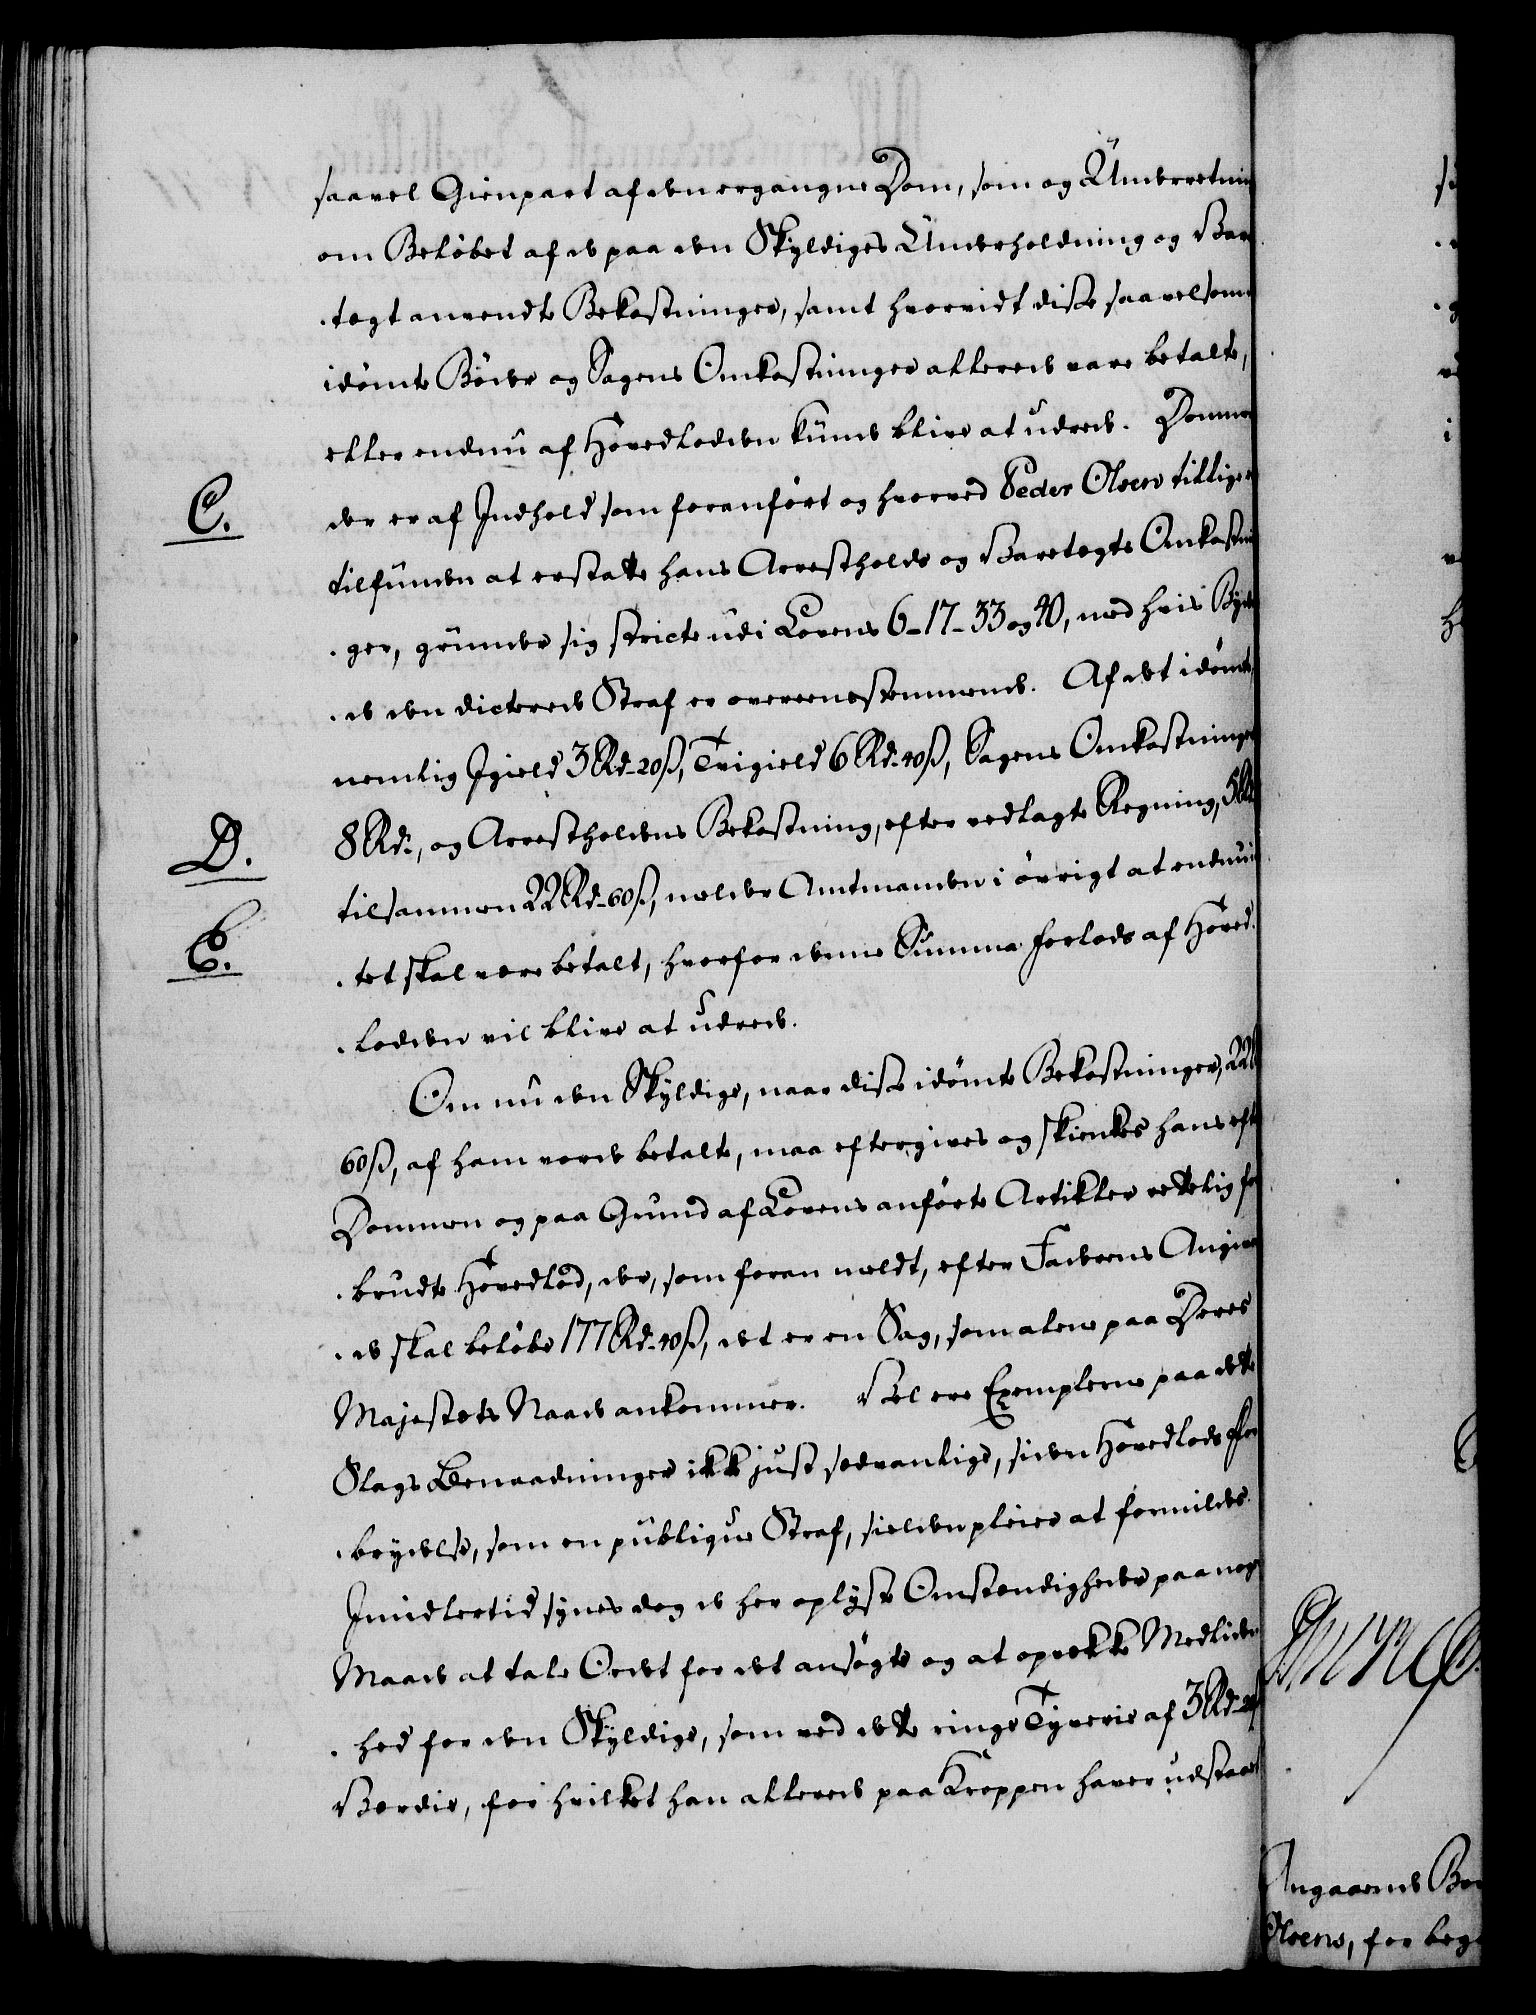 saavel Gienpart af den ergangne Dom, som og Underretnin
om Beløbet af de paa den Skyldiges Underholdning og Vare
tægt anvendte Bekostninger, samt hvorvidt disse saavelsom
idømte Bøder og Sagens Omkostninger allerede vare betalte,
eller endnu af Hovedlodden kunde blive at udrede. Dommen
C.
der er af Indhold som foranført og hvorved Peder Olsen tillige er
tilfunden at erstatte hans Arrestholds og Varetægts Omkostnin
ger, grunder sig stricte udi Lovens 6-17-33 og 40, med hvis Byde
de den dicterede Straf er overeensstemmende. Af det idømte,
nemlig Igield 3 Rd. 20 ß, Tvigield 6 Rd. 40 ß, Sagens Omkostninger
D.
8 Rd., og Arrestholdens Bekostning, efter vedlagte Regning, 5 Rd
E.
tilsammen 22 Rd. 60 ß, melder Amtmanden i øvrigt at endnu in
tet skal være betalt, hvorfor denne Summa forlods af Hoved
lodden vil blive at udrede.
Om nu den Skyldige, naar disse idømte Bekostninger, 22 R
60 ß, af ham vorde betalte, maa eftergives og skienkes hans eft
Dommen og paa Grund af Lovens anførte Artikler rettelig for
brudte Hovedlod, der, som foran meldt, efter Faderens Angiven
de skal beløbe 177 Rd. 40 ß, det er en Sag, som alene paa Deres
Majestæts Naade ankommer. Vel ere Exemplerne paa dette
Slags Benaadninger ikke just sædvanlige, siden Hovedlods For
brydelse, som en publique Straf, sielden pleier at formildes.
Imidlertid synes dog de her oplyste Omstændigheder paa nogen
Maade at tale Ordet for det ansøgte og at opvække Medliden
hed for den Skyldige, som ved dette ringe Tyverie af 3 Rd. 20 ß
Værdie, for hvilket han allerede paa Kroppen haver udstaaet
Angaaende
Olsens, for beg